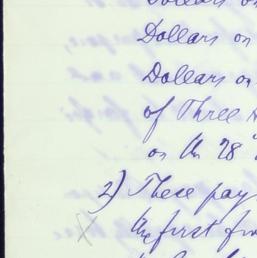 Dollars on
Dollars on
Dollars on
of Three
on the 28"
2) These pay
the first